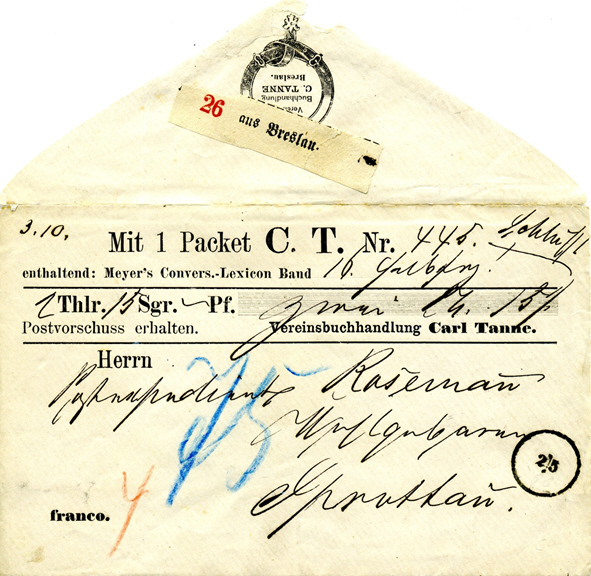 Vereins
Buchhandlung
C. TANNE
Breslau.
26 aus Breslau.
3.10.
Mit 1 Packet C. T. Nr. 445.
enthaltend: Meyer's Convers.-Lexicon Band 16.
2 Thlr. 15 Sgr. – Pf. Zwei Th. 15
Postvorschuss erhalten. Vereinsbuchhandlung Carl Tanne.
Herrn
Postexpedient Rosemann
Wohlgeboren
Sprottau.
franco. 4
2/5